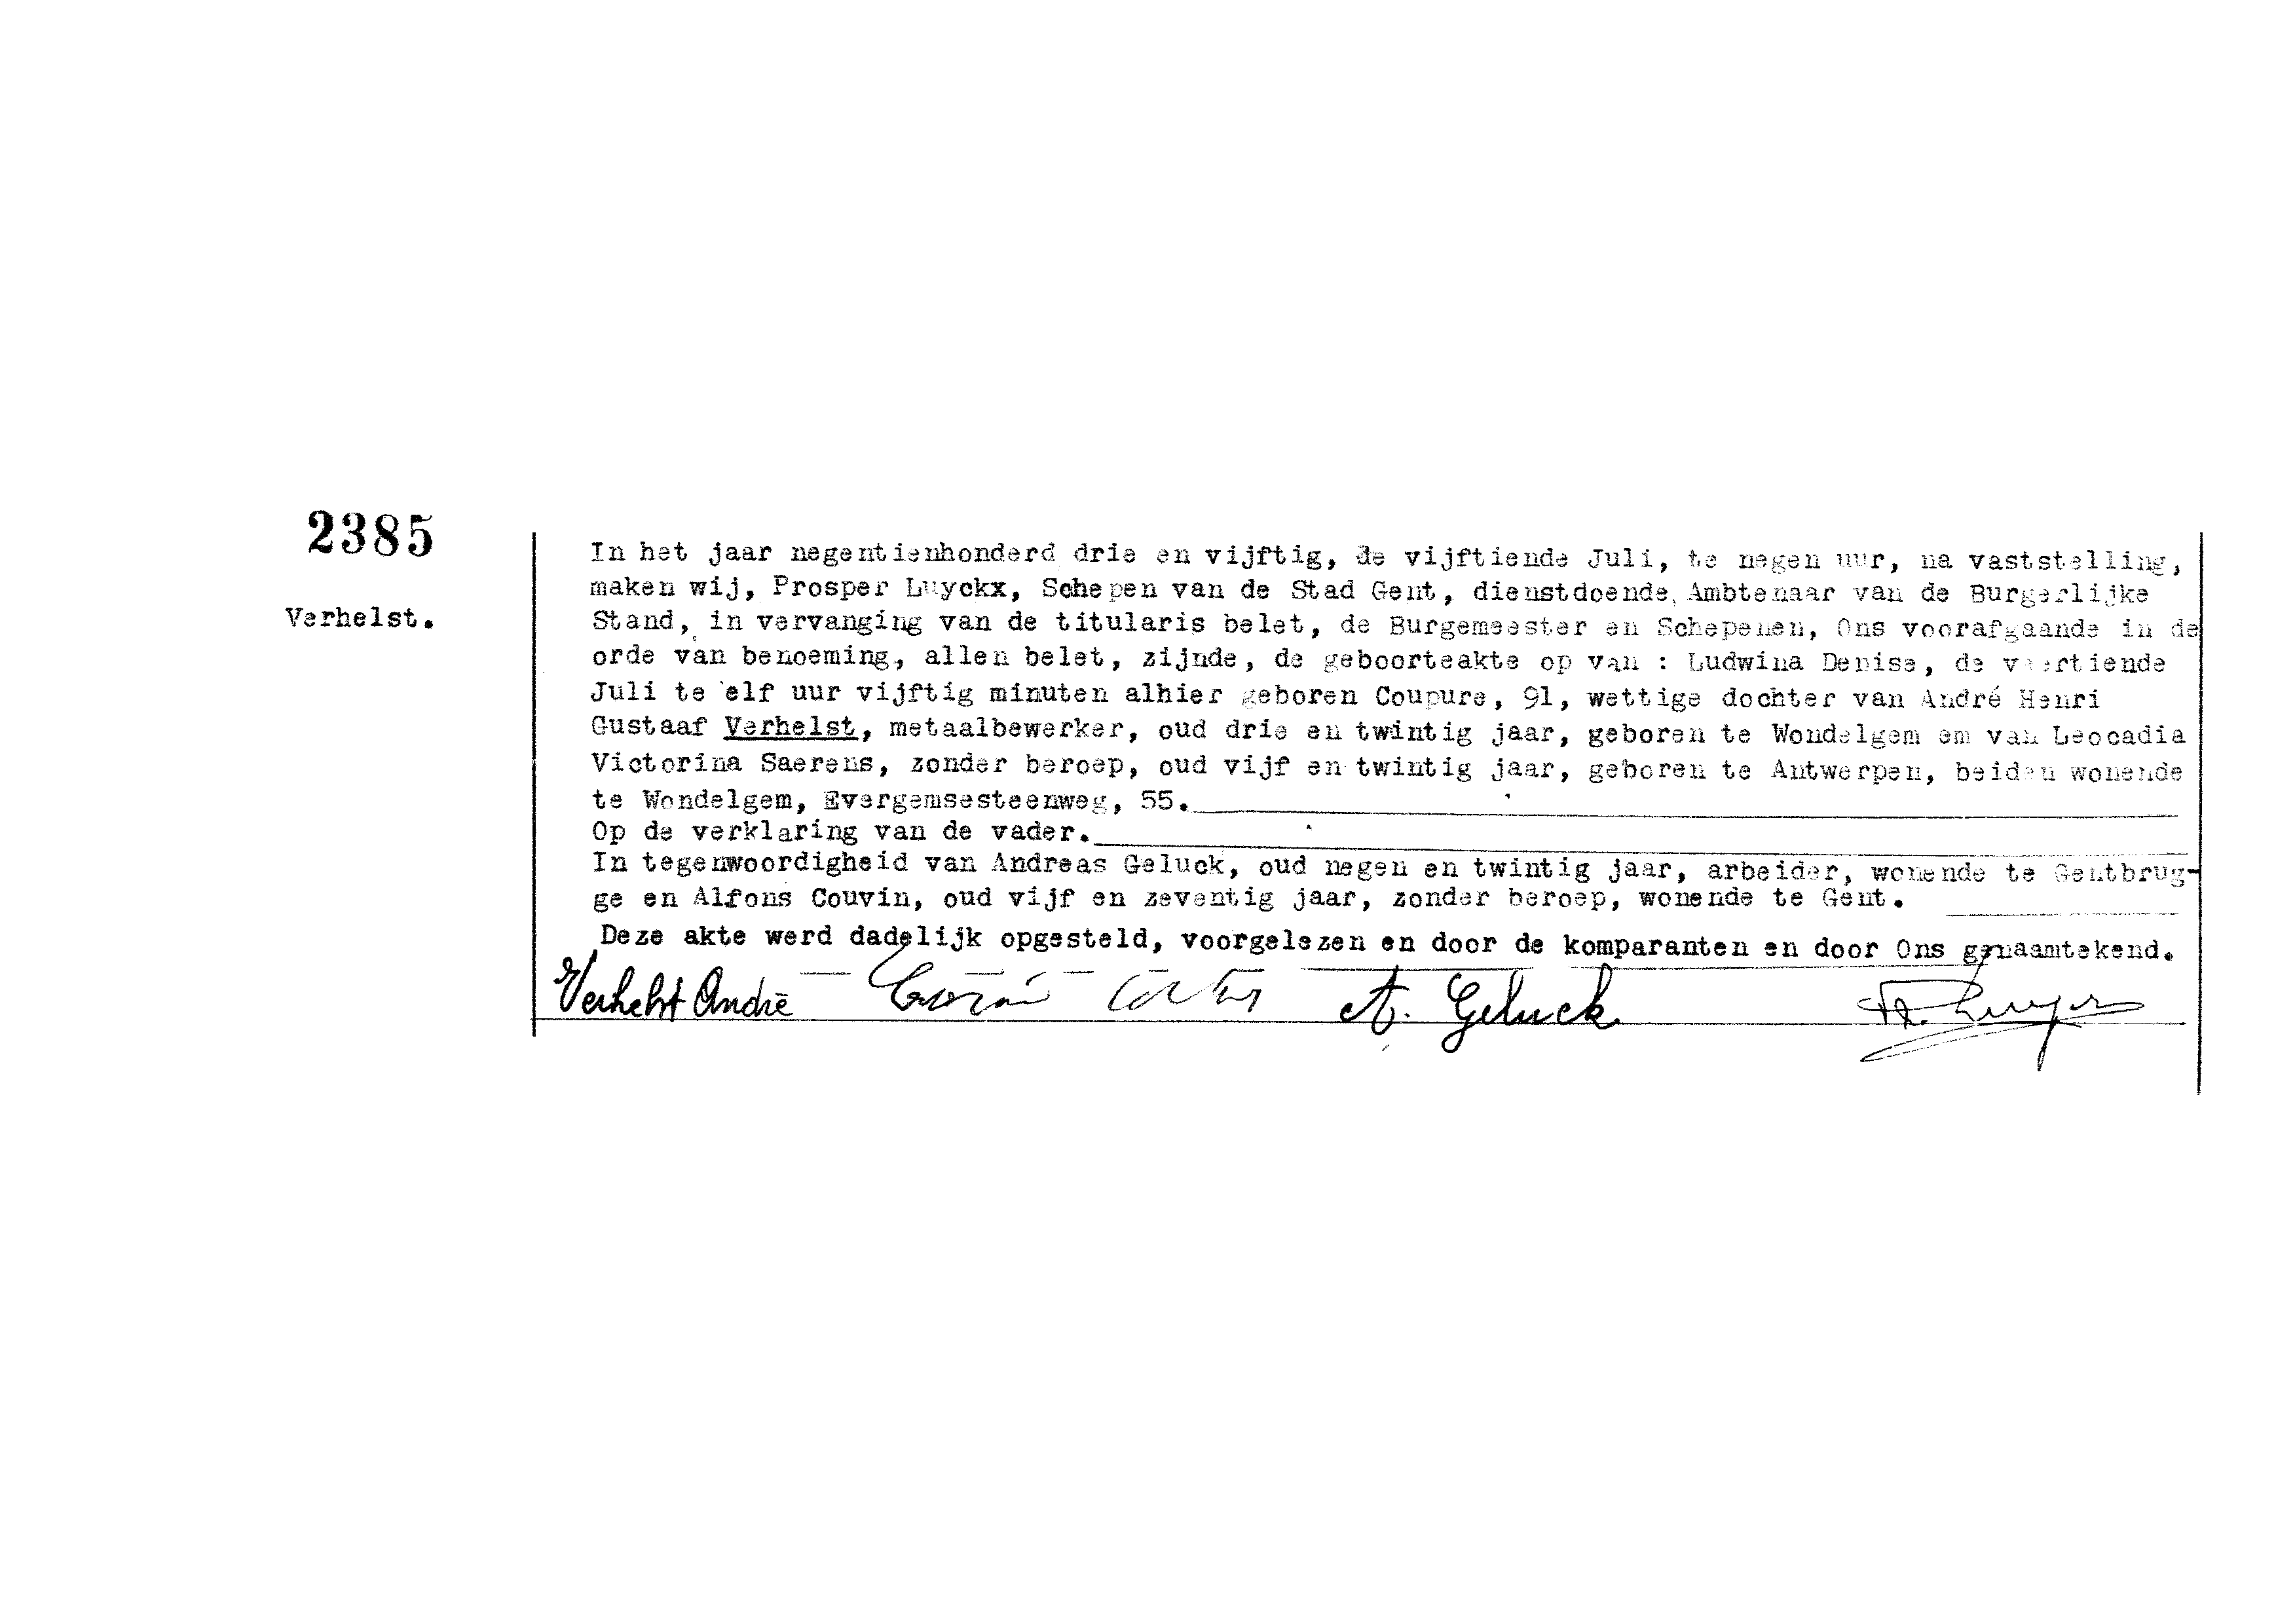 2385
Verhelst.
In het jaar negentienhonderd drie en vijftig, de vijftiende Juli, te negen uur, na vaststelling,
maken wij, Prosper Luyckx, Schepen van de Stad Gent, dienstdoende Ambtenaar van de Burgerlijke
Stand, in vervanging van de titularis belet, de Burgemeester en Schepenen, Ons voorafgaande in de
orde van benoeming, allen belet, zijnde, de geboorteakte op van : Ludwina Denise, de veertiende
Juli te elf uur vijftig minuten alhier geboren Coupure, 91, wettige dochter van André Henri
Gustaaf Verhelst, metaalbewerker, oud drie en twintig jaar, geboren te Wondelgem em van Leocadia
Victorina Saerens, zonder beroep, oud vijf en twintig jaar, geboren te Antwerpen, beiden wonende
te Wondelgem, Evergemsesteenweg, 55.
Op de verklaring van de vader.
In tegenwoordigheid van Andreas Geluck, oud negen en twintig jaar, arbeider, wonende te Gentbrug-
ge en Alfons Couvin, oud vijf en zeventig jaar, zonder beroep, wonende te Gent.
Deze akte werd dadelijk opgesteld, voorgelezen en door de komparanten en door Ons genaamtekend.
Verhelst André A. Geluck